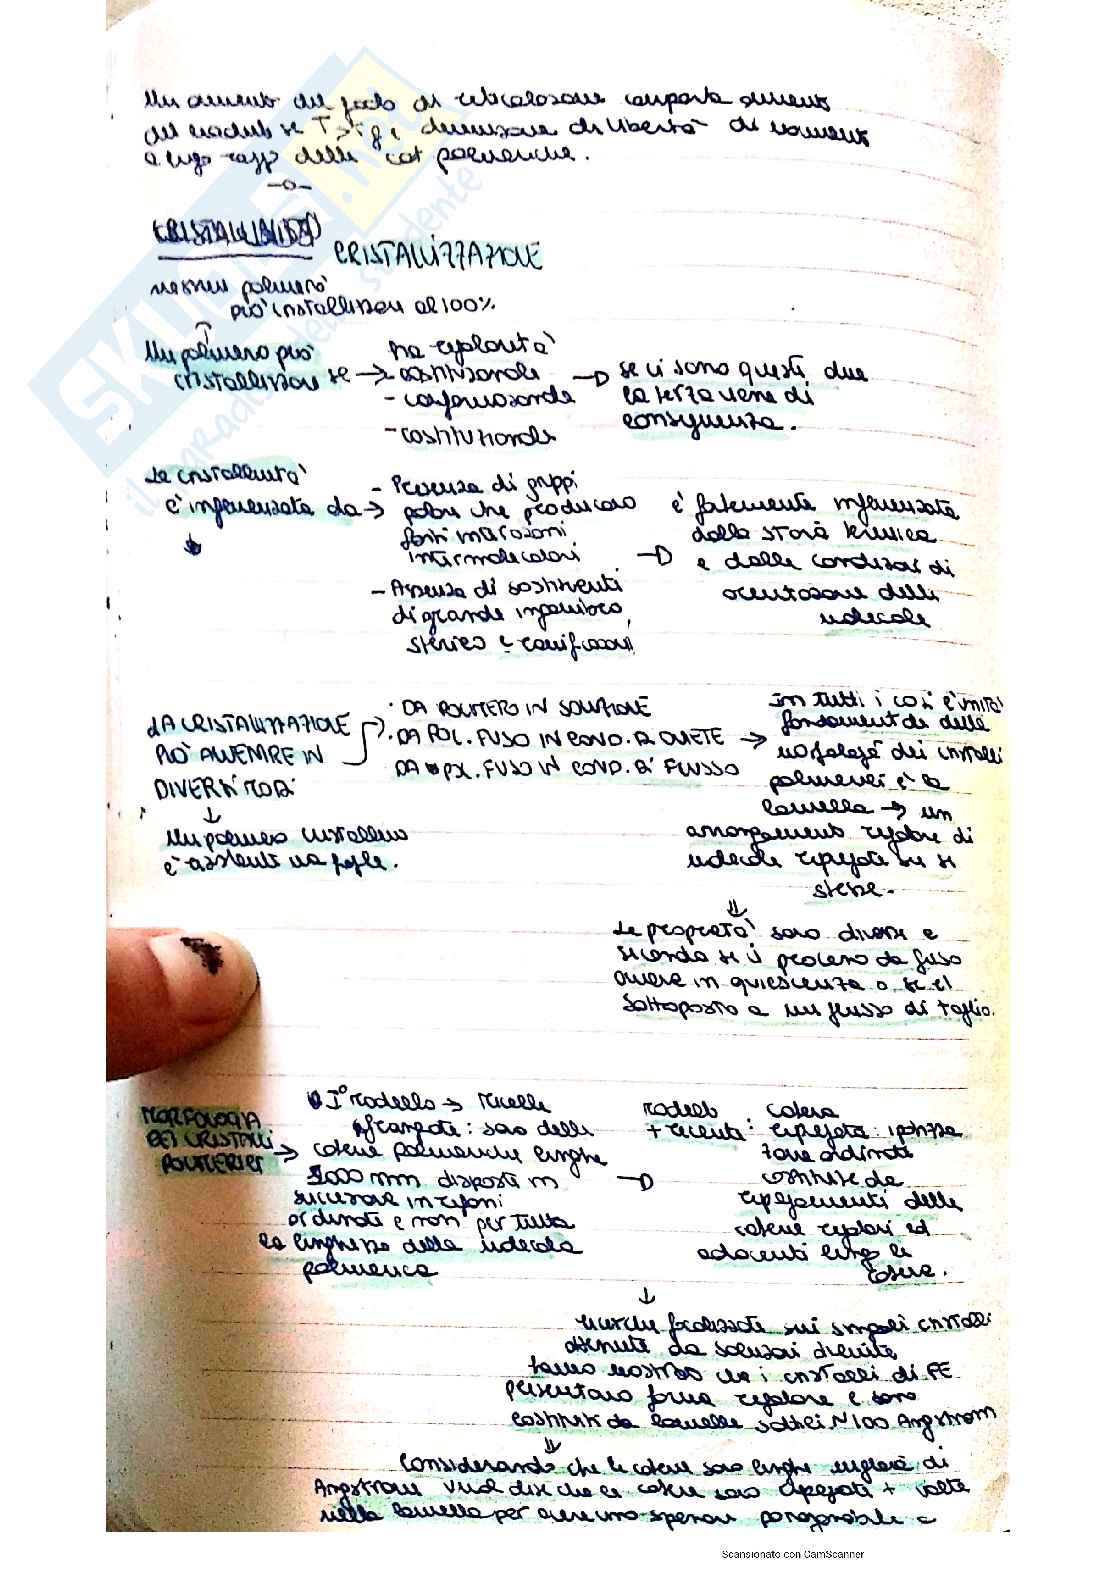 Un aumento del grado di reticolazione comporta aumento
del modulo se T>Tg e diminuzione di libertà di movimento
a lungo raggio delle cat polimeriche.
-o-
CRISTALLINITÀ
CRISTALLIZZAZIONE
nessun polimero
può cristallizzare al 100%
Un polimero può
cristallizzare se →
ha regolarità
- costituzionale
- conformazionale
- costituzionale
→ se ci sono questi due
la terza viene di
conseguenza.
La cristallinità
è influenzata da →
- Presenza di gruppi
polari che producono
forti interazioni
intermolecolari
- Assenza di sostituenti
di grande ingombro
sterico e ramificazioni
→ è fortemente influenzata
dalla storia termica
e dalle condizioni di
orientazione delle
molecole
LA CRISTALLIZZAZIONE
PUÒ AVVENIRE IN
DIVERSI MODI
· DA POLIMERO IN SOLUZIONE
· DA POL. FUSO IN COND. DI QUIETE →
DA POL. FUSO IN COND. DI FLUSSO
In tutti i casi l'unità
fondamentale della
morfologia dei cristalli
polimerici è la
lamella → un
arrangiamento regolare di
molecole ripiegate su se
stesse.
↓
Un polimero cristallino
è
Le proprietà sono diverse a
seconda se il processo da fuso
avviene in quiescenza o se è
sottoposto a un flusso di taglio.
MORFOLOGIA
DEI CRISTALLI
POLIMERICI
→
I° modello → micelle
sfrangiate: sono delle
catene polimeriche lunghe
1000 mm disposti in
successione in regioni
ordinate e non per tutta
la lunghezza della molecola
polimerica
→
modello
+ recente:
catena
ripiegata: ipotizza
zone ordinate
costituite da
ripiegamenti delle
catene regolari ed
adiacenti lungo le
↓
ricerche focalizzate sui singoli cristalli
ottenute da soluzioni diluite
hanno mostrato che i cristalli di PE
presentano forma regolare e sono
costituiti da lamelle sottili ~100 Angstrom
⇓
Considerando che le catene sono lunghe migliaia di
Angstrom vuol dire che le catene sono ripiegate + volte
nella lamella per avere uno spessore paragonabile a
Scansionato con CamScanner
SKUOLA.net
il paradiso dello studente